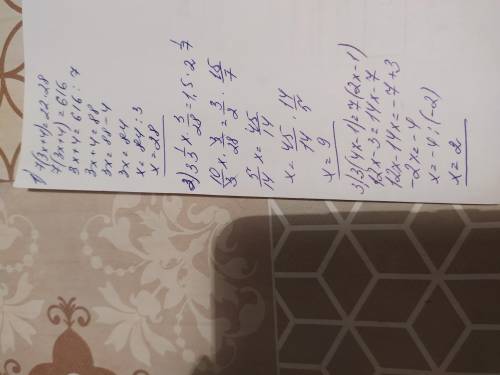 1) 7(3x+4)=22·28
7(3x+4)=616
3x+4=616:7
3x+4=88
3x=88-4
3x=84
x=84:3
x=28
2) 3 1/3 x · 3/28 = 1,5 · 2 1/7
10/3 x · 3/28 = 3/2 · 15/7
5/14 x = 45/14
x = 45/14 · 14/5
x = 9
3) 3(4x-1)=7(2x-1)
12x-3=14x-7
12x-14x=-7+3
-2x=-4
x=-4:(-2)
x=2